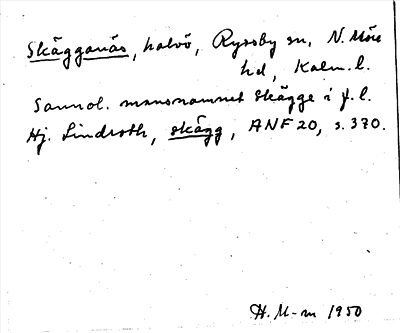 Skägganäs, halvö, Ryssby sn, N. Möre
hd, Kalm. l.
Sannol. mansnamnet Skägge i f. l.
Hj. Lindroth, skägg, ANF 20, s. 370.
H. M-m 1950